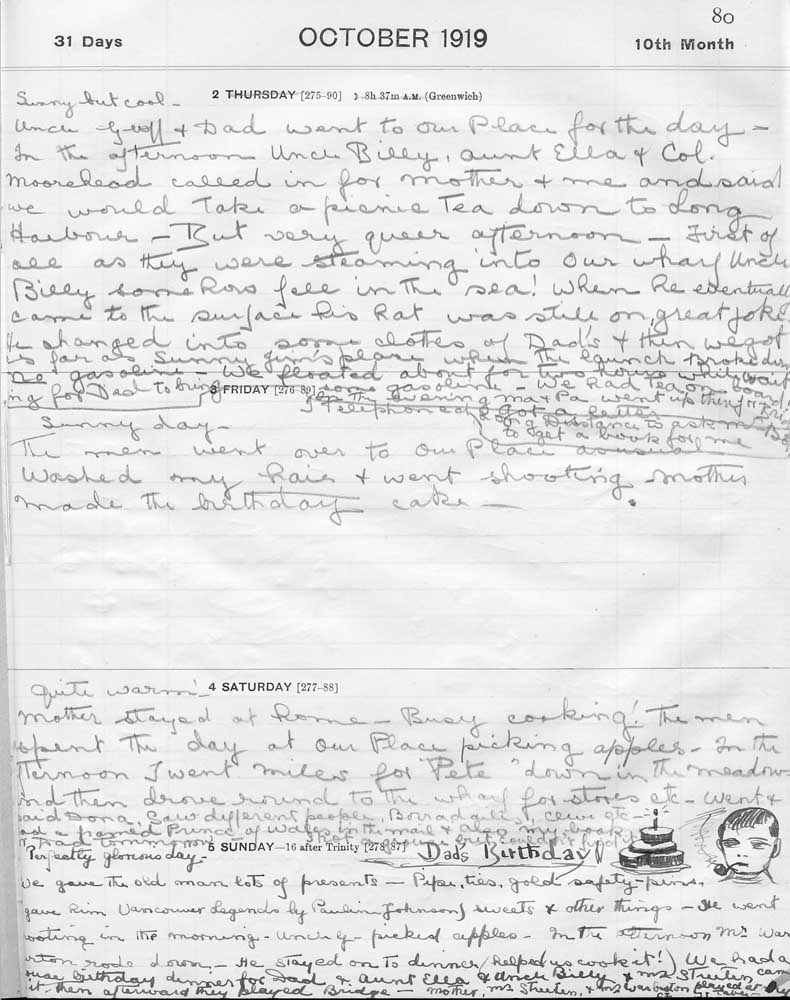 80
31 Days
OCTOBER 1919
10th Month
2 THURSDAY [275-90] ☽ 8h 37m A.M. (Greenwich)
Sunny but cool -
Uncle Geoff & Dad went to our Place for the day -
In the afternoon Uncle Billy, aunt Ella & Col.
Moorehead called in for mother & me and said
we would take a picnic Tea down to Long
Harbour - But very queer afternoon - First of
all as they were steaming into our wharf Uncle
Billy some how fell in the sea! When he eventuall
came to the surface his hat was still on, great joke!
He changed into some clothes of Dad's & then we got
as far as Sunny Jim's place when the launch broke down
no gasoline - We floated about for two hours while wait
ing for Dad to bring some gasoline - We had Tea on board!
3 FRIDAY [276-89]
In the evening ma & Pa went up
Telephoned & got a letter
Long Distance to ask
to get a book for me
Sunny day -
The men went over to our Place as usual
Washed my hair & went shooting mother
made the birthday cake -
4 SATURDAY [277-88]
Quite warm!
Mother stayed at home - Busy cooking! The men
spent the day at our Place picking apples - In the
fternoon I went miles for "Pete" down in the meadows
and then drove round to the wharf for stores etc - Went &
Dona, Saw different people, etc -
had a framed Prince of Wales in the mail & also my book
5 SUNDAY—16 after Trinity [278-87]
Dad's Birthday
Perfectly glorious day -
We gave the old man lots of presents - Pipe, ties, gold safety-pins,
gave him Vancouver Legends by Pauline Johnson) sweets & other things - He went
ooting in the morning - Uncle G - picked apples - In the afternoon Mr War
urton rode down - He stayed on to dinner (helped us cook it!) We had a
birthday dinner for Dad & Aunt Ella & Uncle Billy & Mrs Streeten came
it. then afterward they played Bridge - Mother, Mrs Streeten, & Mr Warburton played